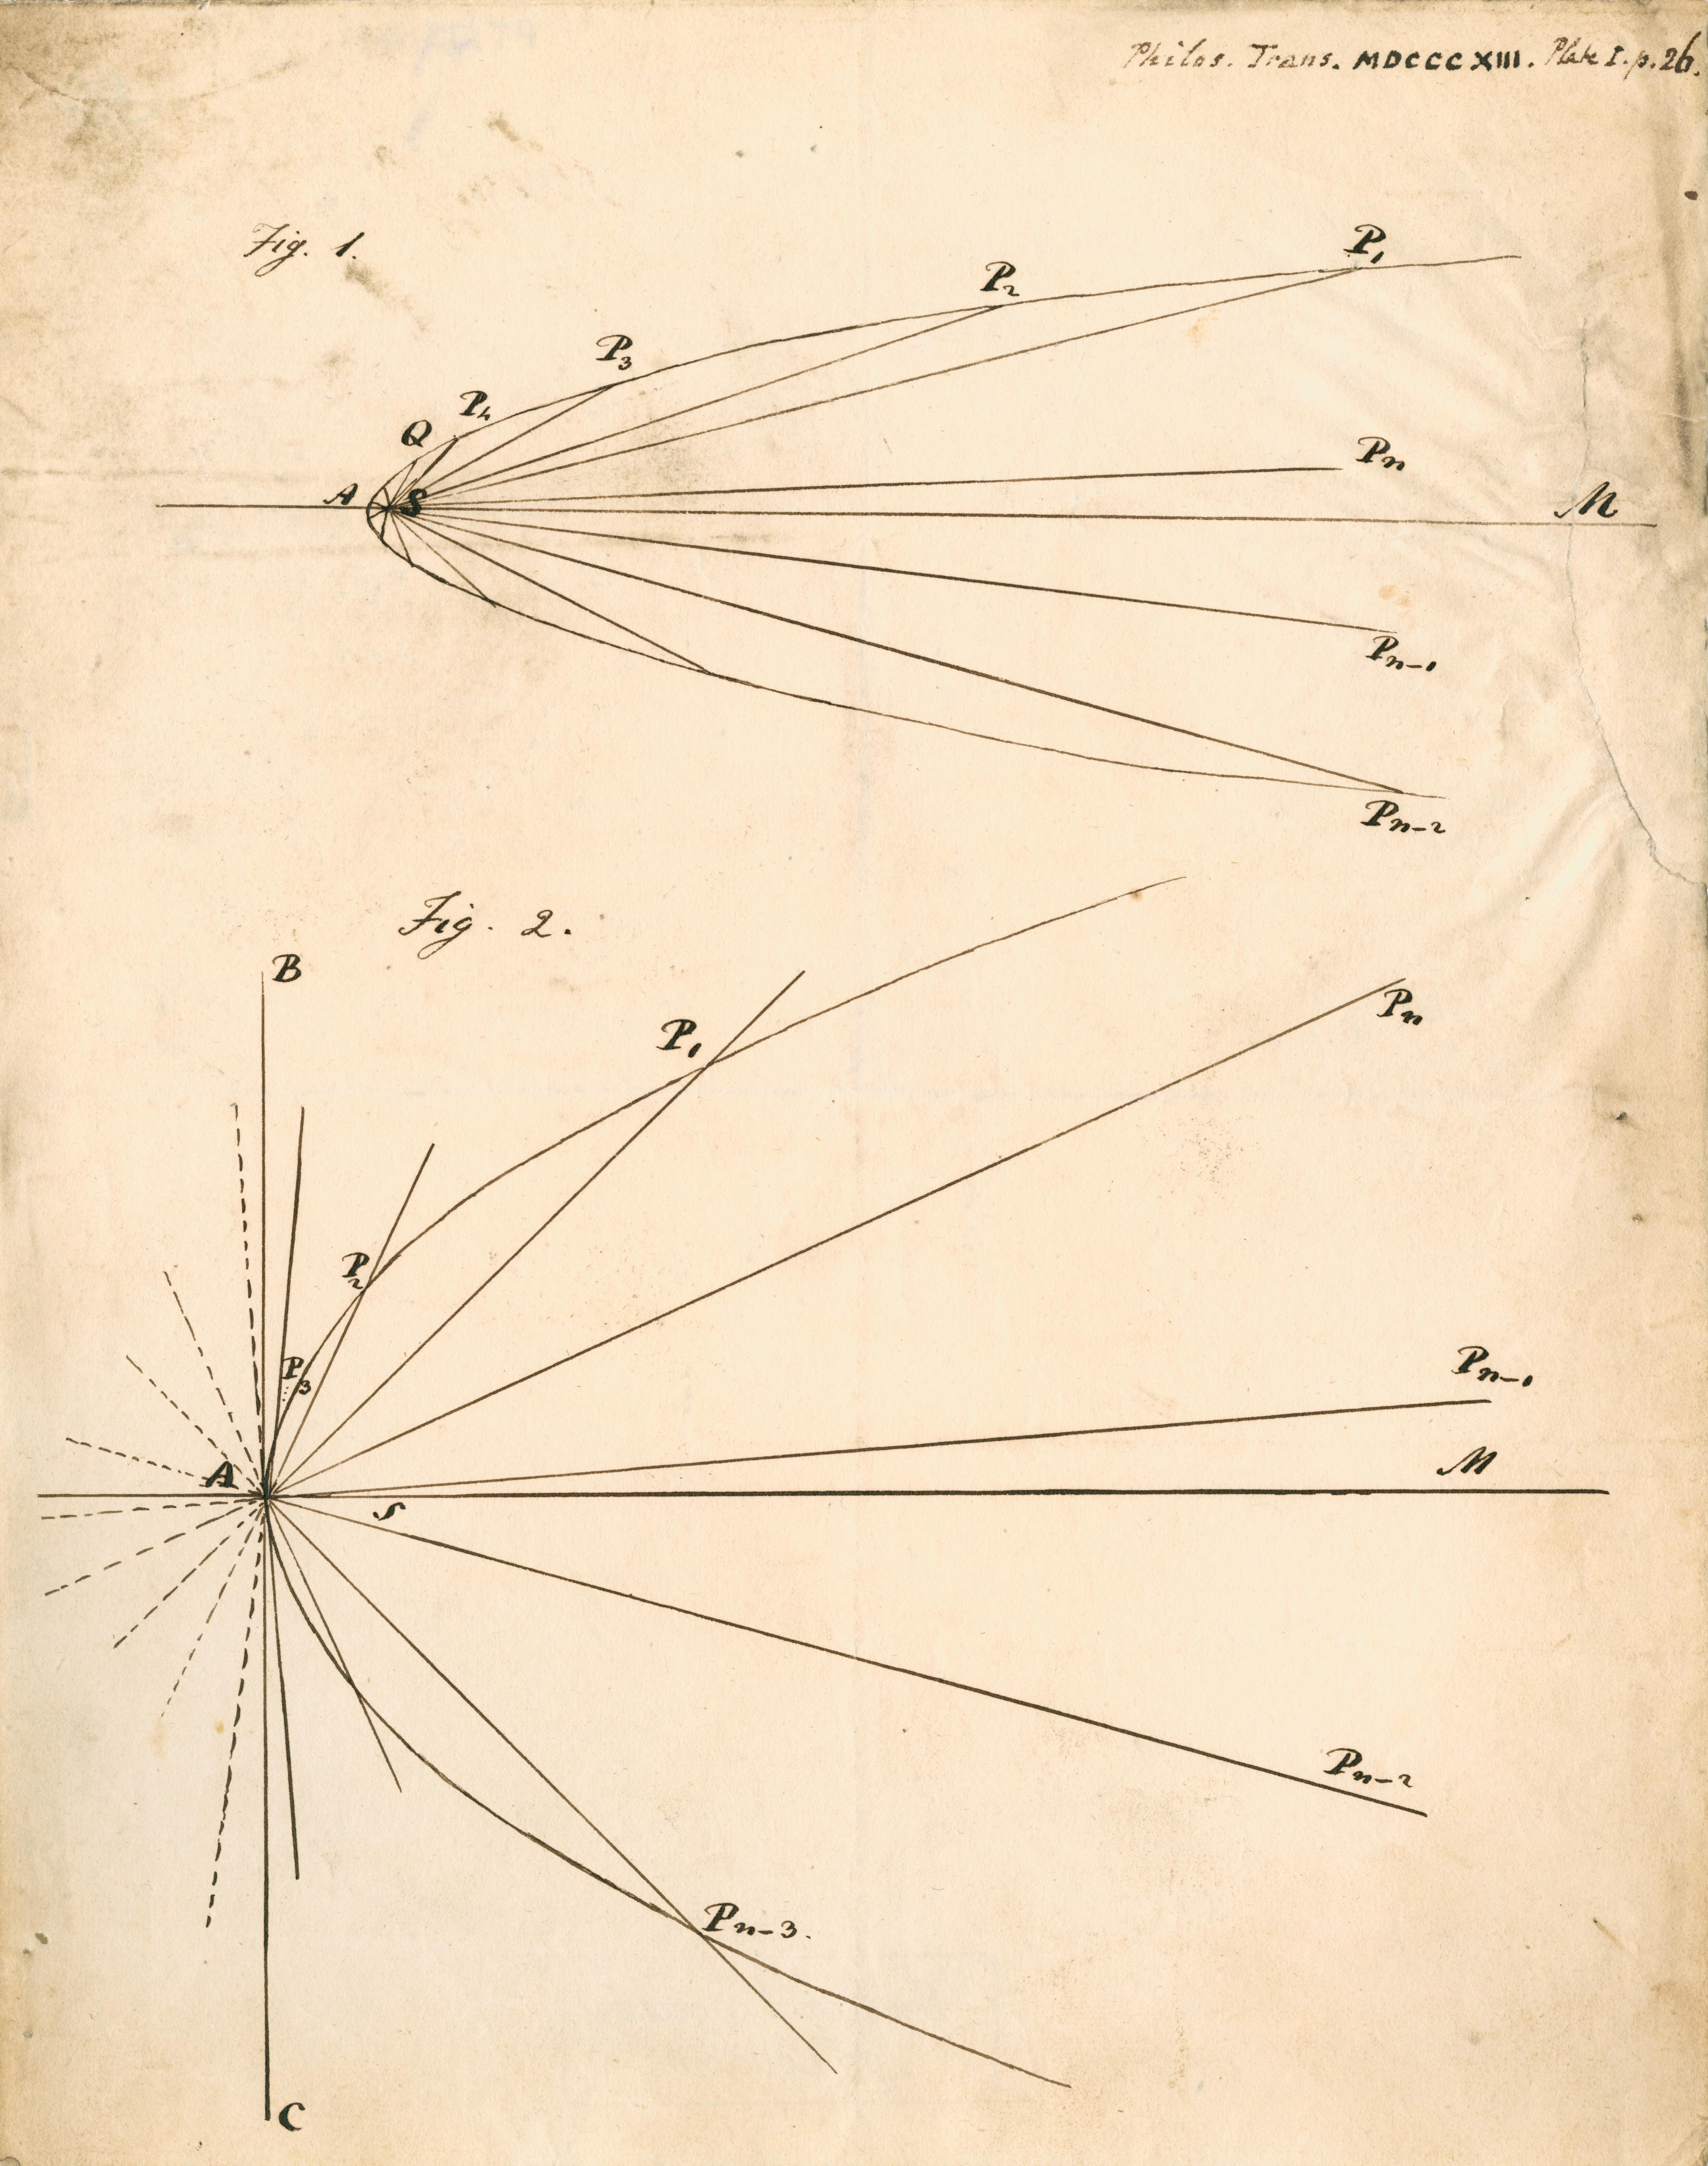 Philos. Trans. MDCCCXIII. Plate I. p. 26.
Fig. 1.
P1
P2
P3
P4
Q
A
S
Pn
M
Pn-1
Pn-2
Fig. 2.
B
Pn
P1
P2
P3
Pn-1
M
A
S
Pn-2
Pn-3.
C